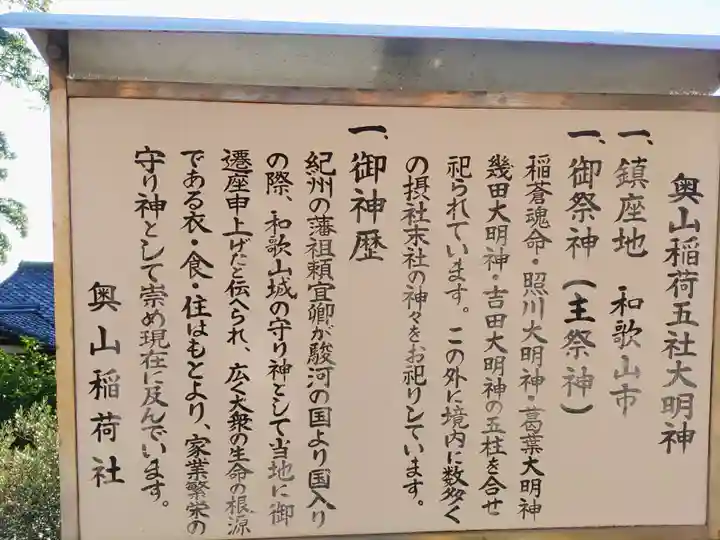 奥山稲荷五社大明神
一、鎮座地　和歌山市
一、御祭神（主祭神）
稲蒼魂命・照川大明神・葛葉大明神
幾田大明神・吉田大明神の五柱を合せ
祀られています。この外に境内に数多く
の摂社末社の神々をお祀りしています。
一、御神歴
紀州の藩祖頼宜卿が駿河の国より国入り
の際、和歌山城の守り神として当地に御
遷座申上げたと伝へられ、広く大衆の生命の根源
である衣・食・住はもとより、家業繁栄の
守り神として崇め現在に及んでいます。
奥山稲荷社